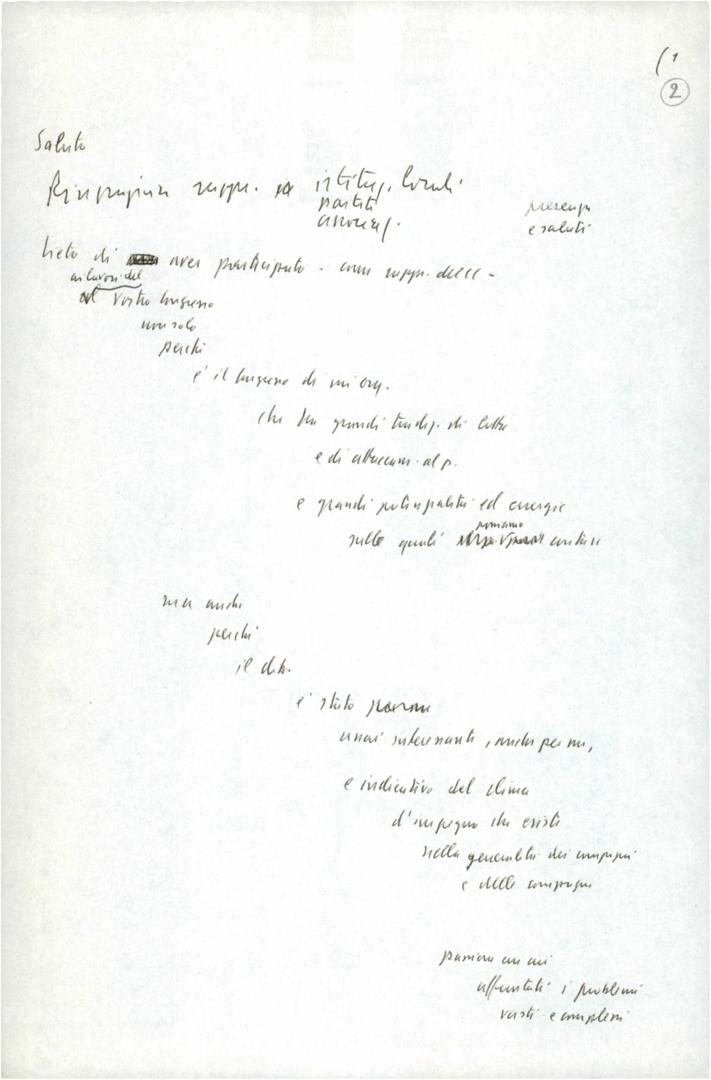 (1
2
Saluto
rappr. istituz. locali
partiti
associaz.
presenza
e saluti
Lieto di aver participato - come rappr. della -
ai lavori del
al vostro congresso
non solo
perché
è il congresso di un' org.
che ha grandi tradiz. di lotta
e di attaccam. al p.
e grandi potenzialità ed energie
sulle quali possiamo contare
ma anche
perché
il dib.
è stato
assai interessante, anche per me,
e indicativo del clima
d'impegno che esiste
nella generalità dei compagni
e delle compagne
passione con cui
affrontati i problemi
vasti e complessi